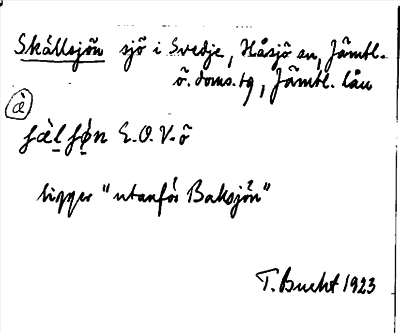 Skällsjön sjö i Svedje, Håsjö sn, Jämtl.
ö. doms. tg, Jämtl. län
à
E.O. V-ö
ligger "utanför Baksjön"
T. Bucht 1923